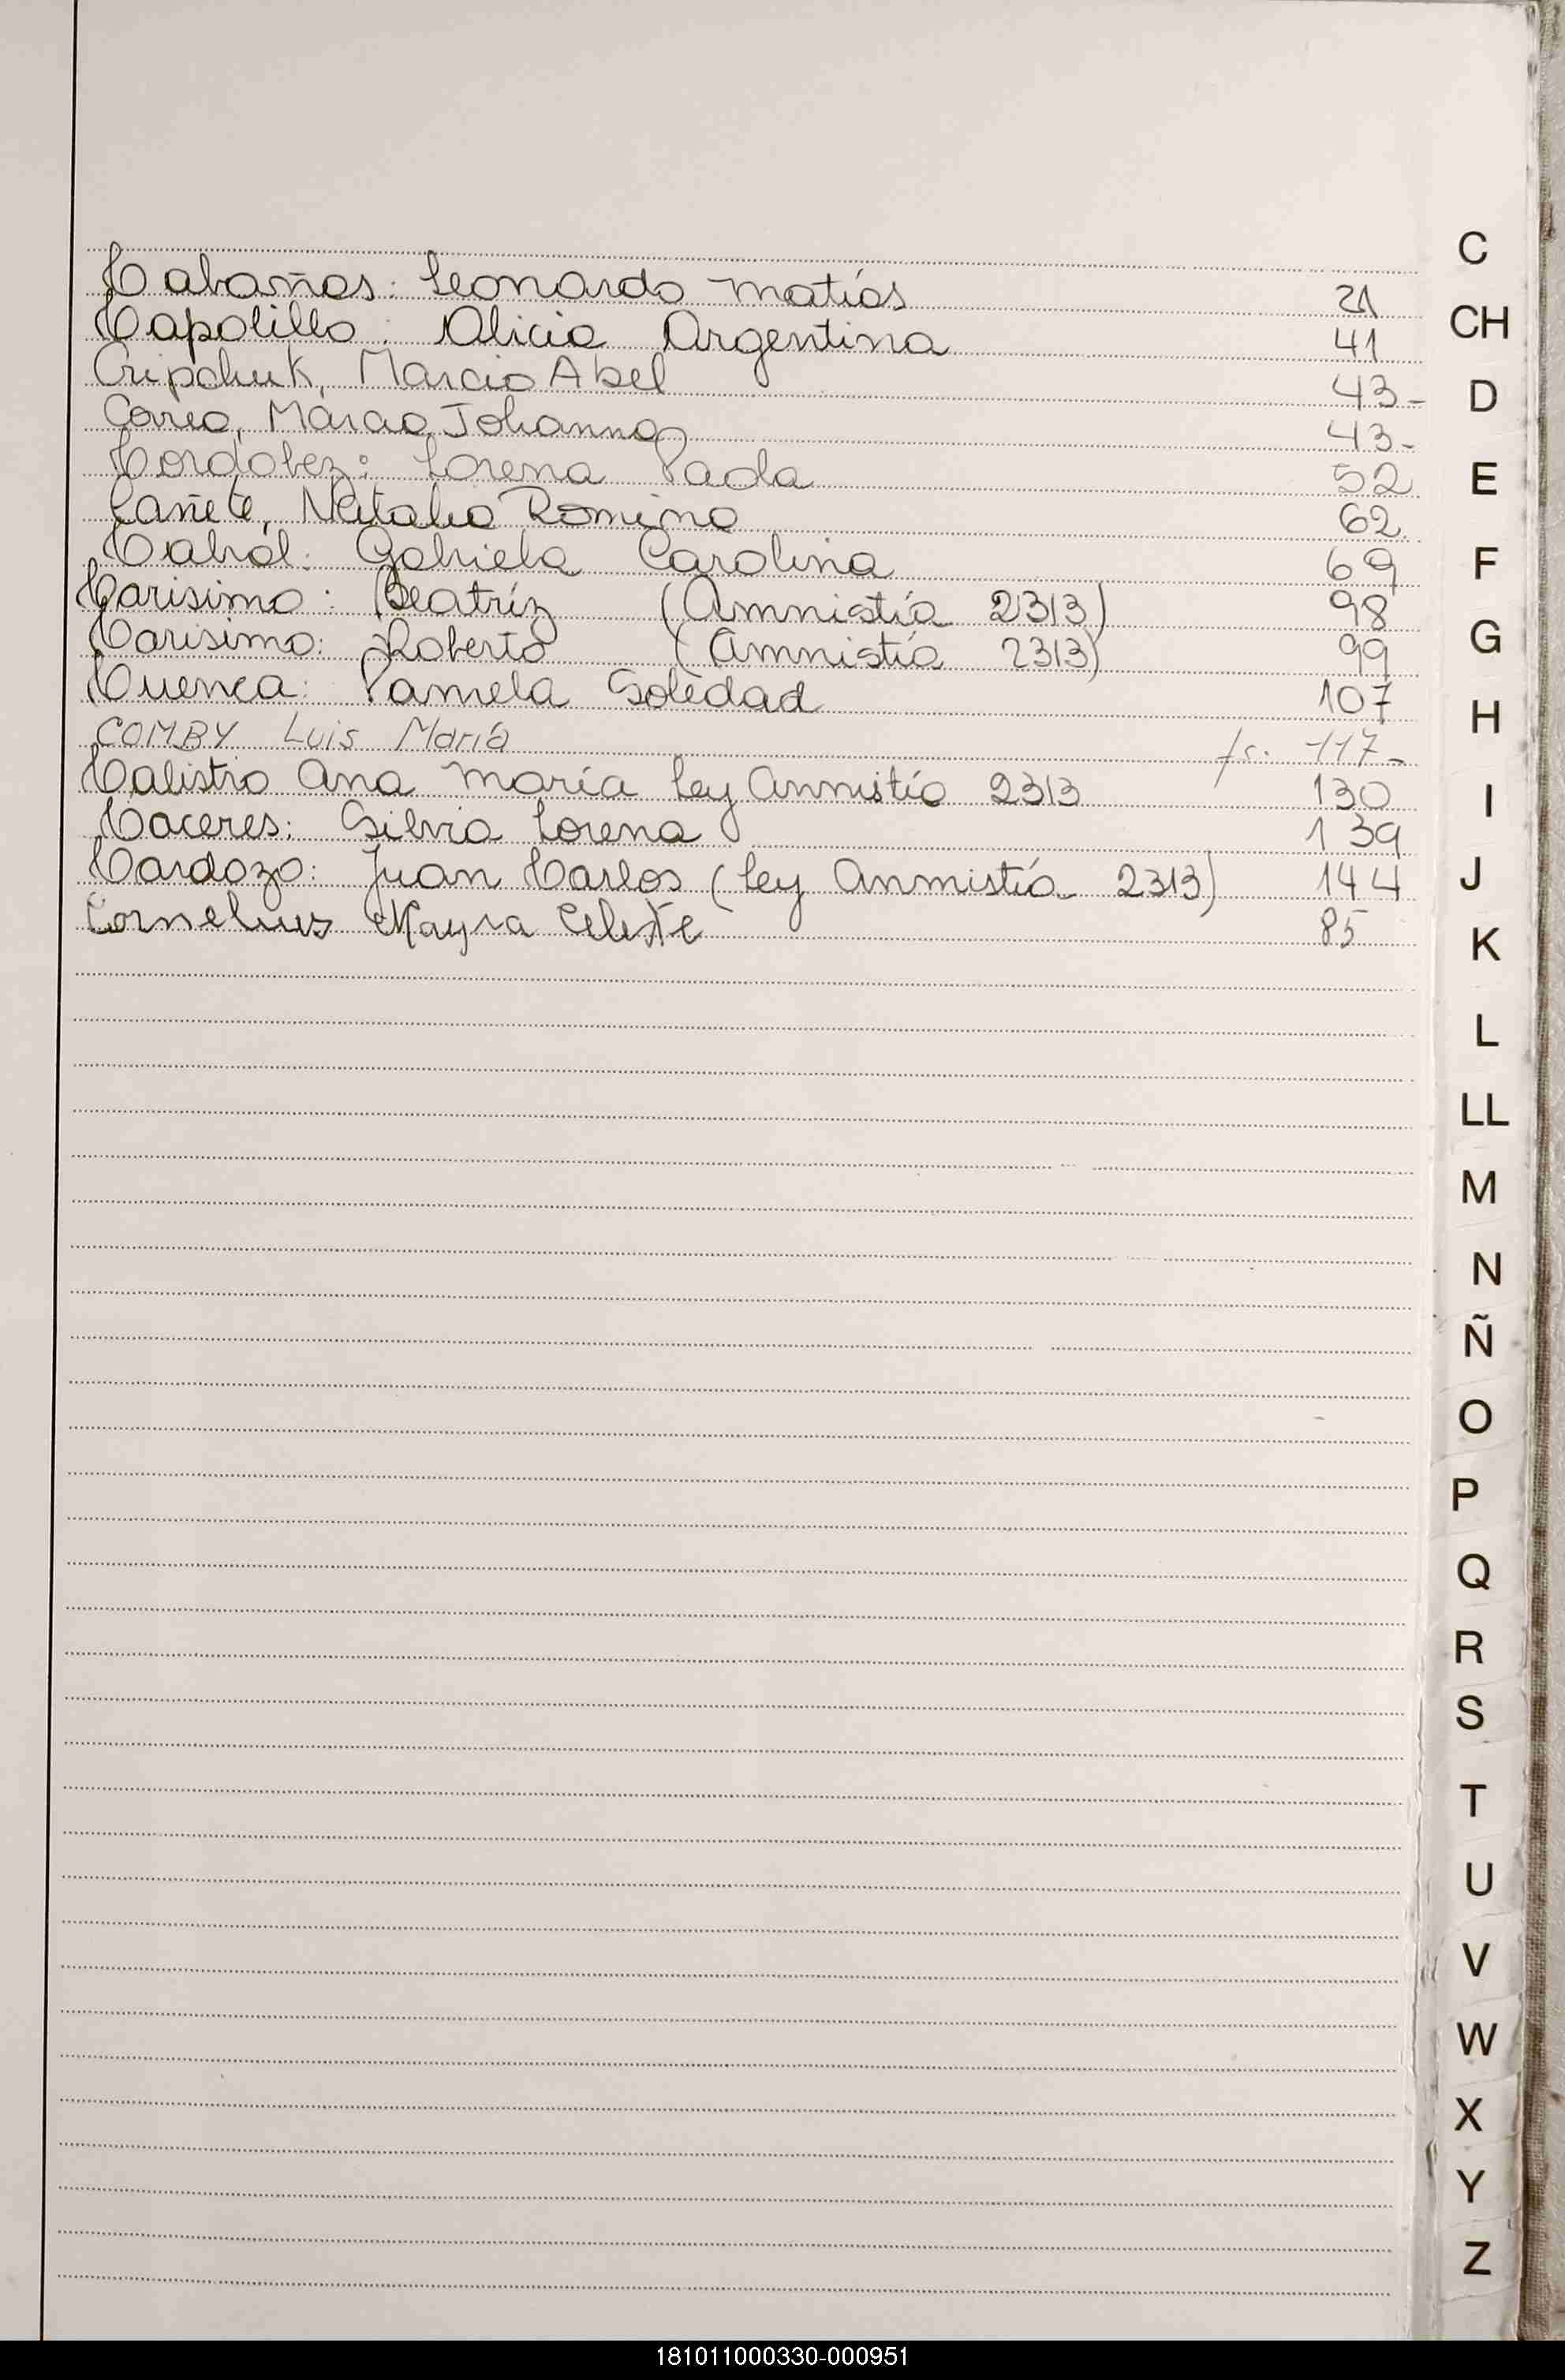 Cabañas: Leonardo Matías 21
Capolillo: Alicia Argentina 41
Cripchuk, Marcio Abel 43-
Correa, Marcia Johanna 43-
Cordobez: Lorena Paola 52
Cañete, Natalia Romina 62
Cabrál: Gabriela Carolina 69
Carisimo: Beatríz (Amnistía 2313) 98
Carisimo: Roberto (Amnistía 2313) 99
Cuenca: Pamela Soledad 107
COMBY Luis María fs. 117-
Calistro Ana María Ley Anmistía 2313 130
Caceres: Silvia Lorena 139
Cardozo: Juan Carlos (Ley Anmistía 2313) 144
Cornelius Mayra Celeste 85
C
CH
D
E
F
G
H
I
J
K
L
LL
M
N
Ñ
O
P
Q
R
S
T
U
V
W
X
Y
Z
181011000330-000951